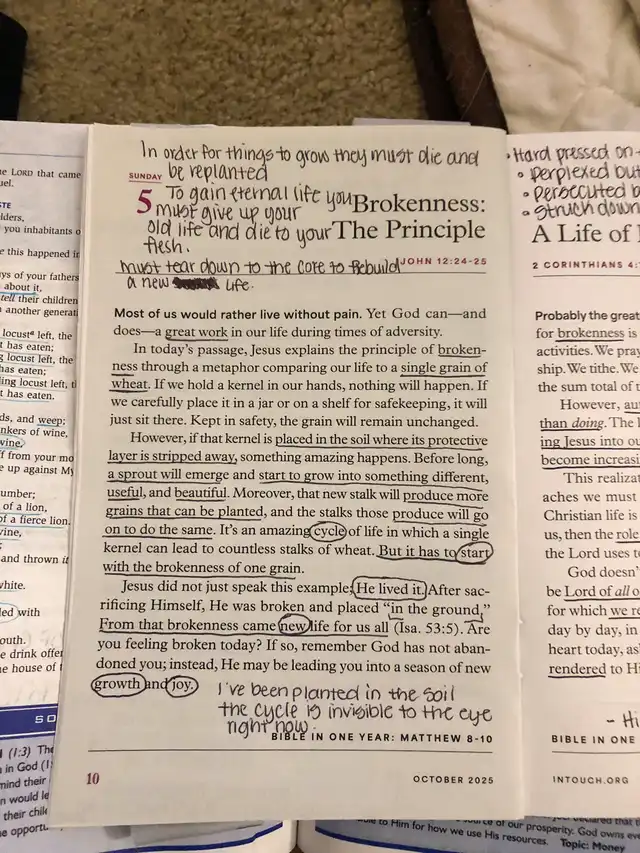 In order for things to grow they must die and
be replanted
SUNDAY
5
To gain eternal life you
must give up your
old life and die to your
flesh.
Brokenness:
The Principle
JOHN 12:24-25
must tear down to the core to Rebuild
a new life.
Most of us would rather live without pain. Yet God can—and
does—a great work in our life during times of adversity.
In today's passage, Jesus explains the principle of broken-
ness through a metaphor comparing our life to a single grain of
wheat. If we hold a kernel in our hands, nothing will happen. If
we carefully place it in a jar or on a shelf for safekeeping, it will
just sit there. Kept in safety, the grain will remain unchanged.
However, if that kernel is placed in the soil where its protective
layer is stripped away, something amazing happens. Before long,
a sprout will emerge and start to grow into something different,
useful, and beautiful. Moreover, that new stalk will produce more
grains that can be planted, and the stalks those produce will go
on to do the same. It's an amazing cycle of life in which a single
kernel can lead to countless stalks of wheat. But it has to start
with the brokenness of one grain.
Jesus did not just speak this example; He lived it. After sac-
rificing Himself, He was broken and placed "in the ground."
From that brokenness came new life for us all (Isa. 53:5). Are
you feeling broken today? If so, remember God has not aban-
doned you; instead, He may be leading you into a season of new
growth and joy.
I've been planted in the soil
the cycle is invisible to the eye
right now.
BIBLE IN ONE YEAR: MATTHEW 8-10
10
OCTOBER 2025
• Hard pressed on
• perplexed but
• persecuted b
• struck down
A Life of
2 CORINTHIANS 4:
Probably the great
for brokenness is
activities. We pray
ship. We tithe. We
the sum total of t
However, au
than doing. The
ing Jesus into ou
become increasi
This realizat
aches we must
Christian life is
us, then the role
the Lord uses t
God doesn'
be Lord of all o
for which we re
day by day, in
heart today, as
rendered to Hi
- Hi
BIBLE IN ONE
INTOUCH.ORG
e LORD that came
uel.
STE
elders,
you inhabitants o
e this happened in
ys of your fathers
about it,
tell their children
another generati
locust left, the
t has eaten;
g locust left, the
has eaten;
ling locust left, t
t has eaten.
ds, and weep;
nkers of wine,
wine,
ff from your mo
e up against My
umber;
of a lion,
of a fierce lion.
vine,
and thrown it
white.
led with
outh.
e drink offer
he house of
SO
(1:3) The
in God (1:
mind their
n would le
their chil
e opportu
ble to Him for how we use His resources.
source of our prosperity. God owns eve
Topic: Money